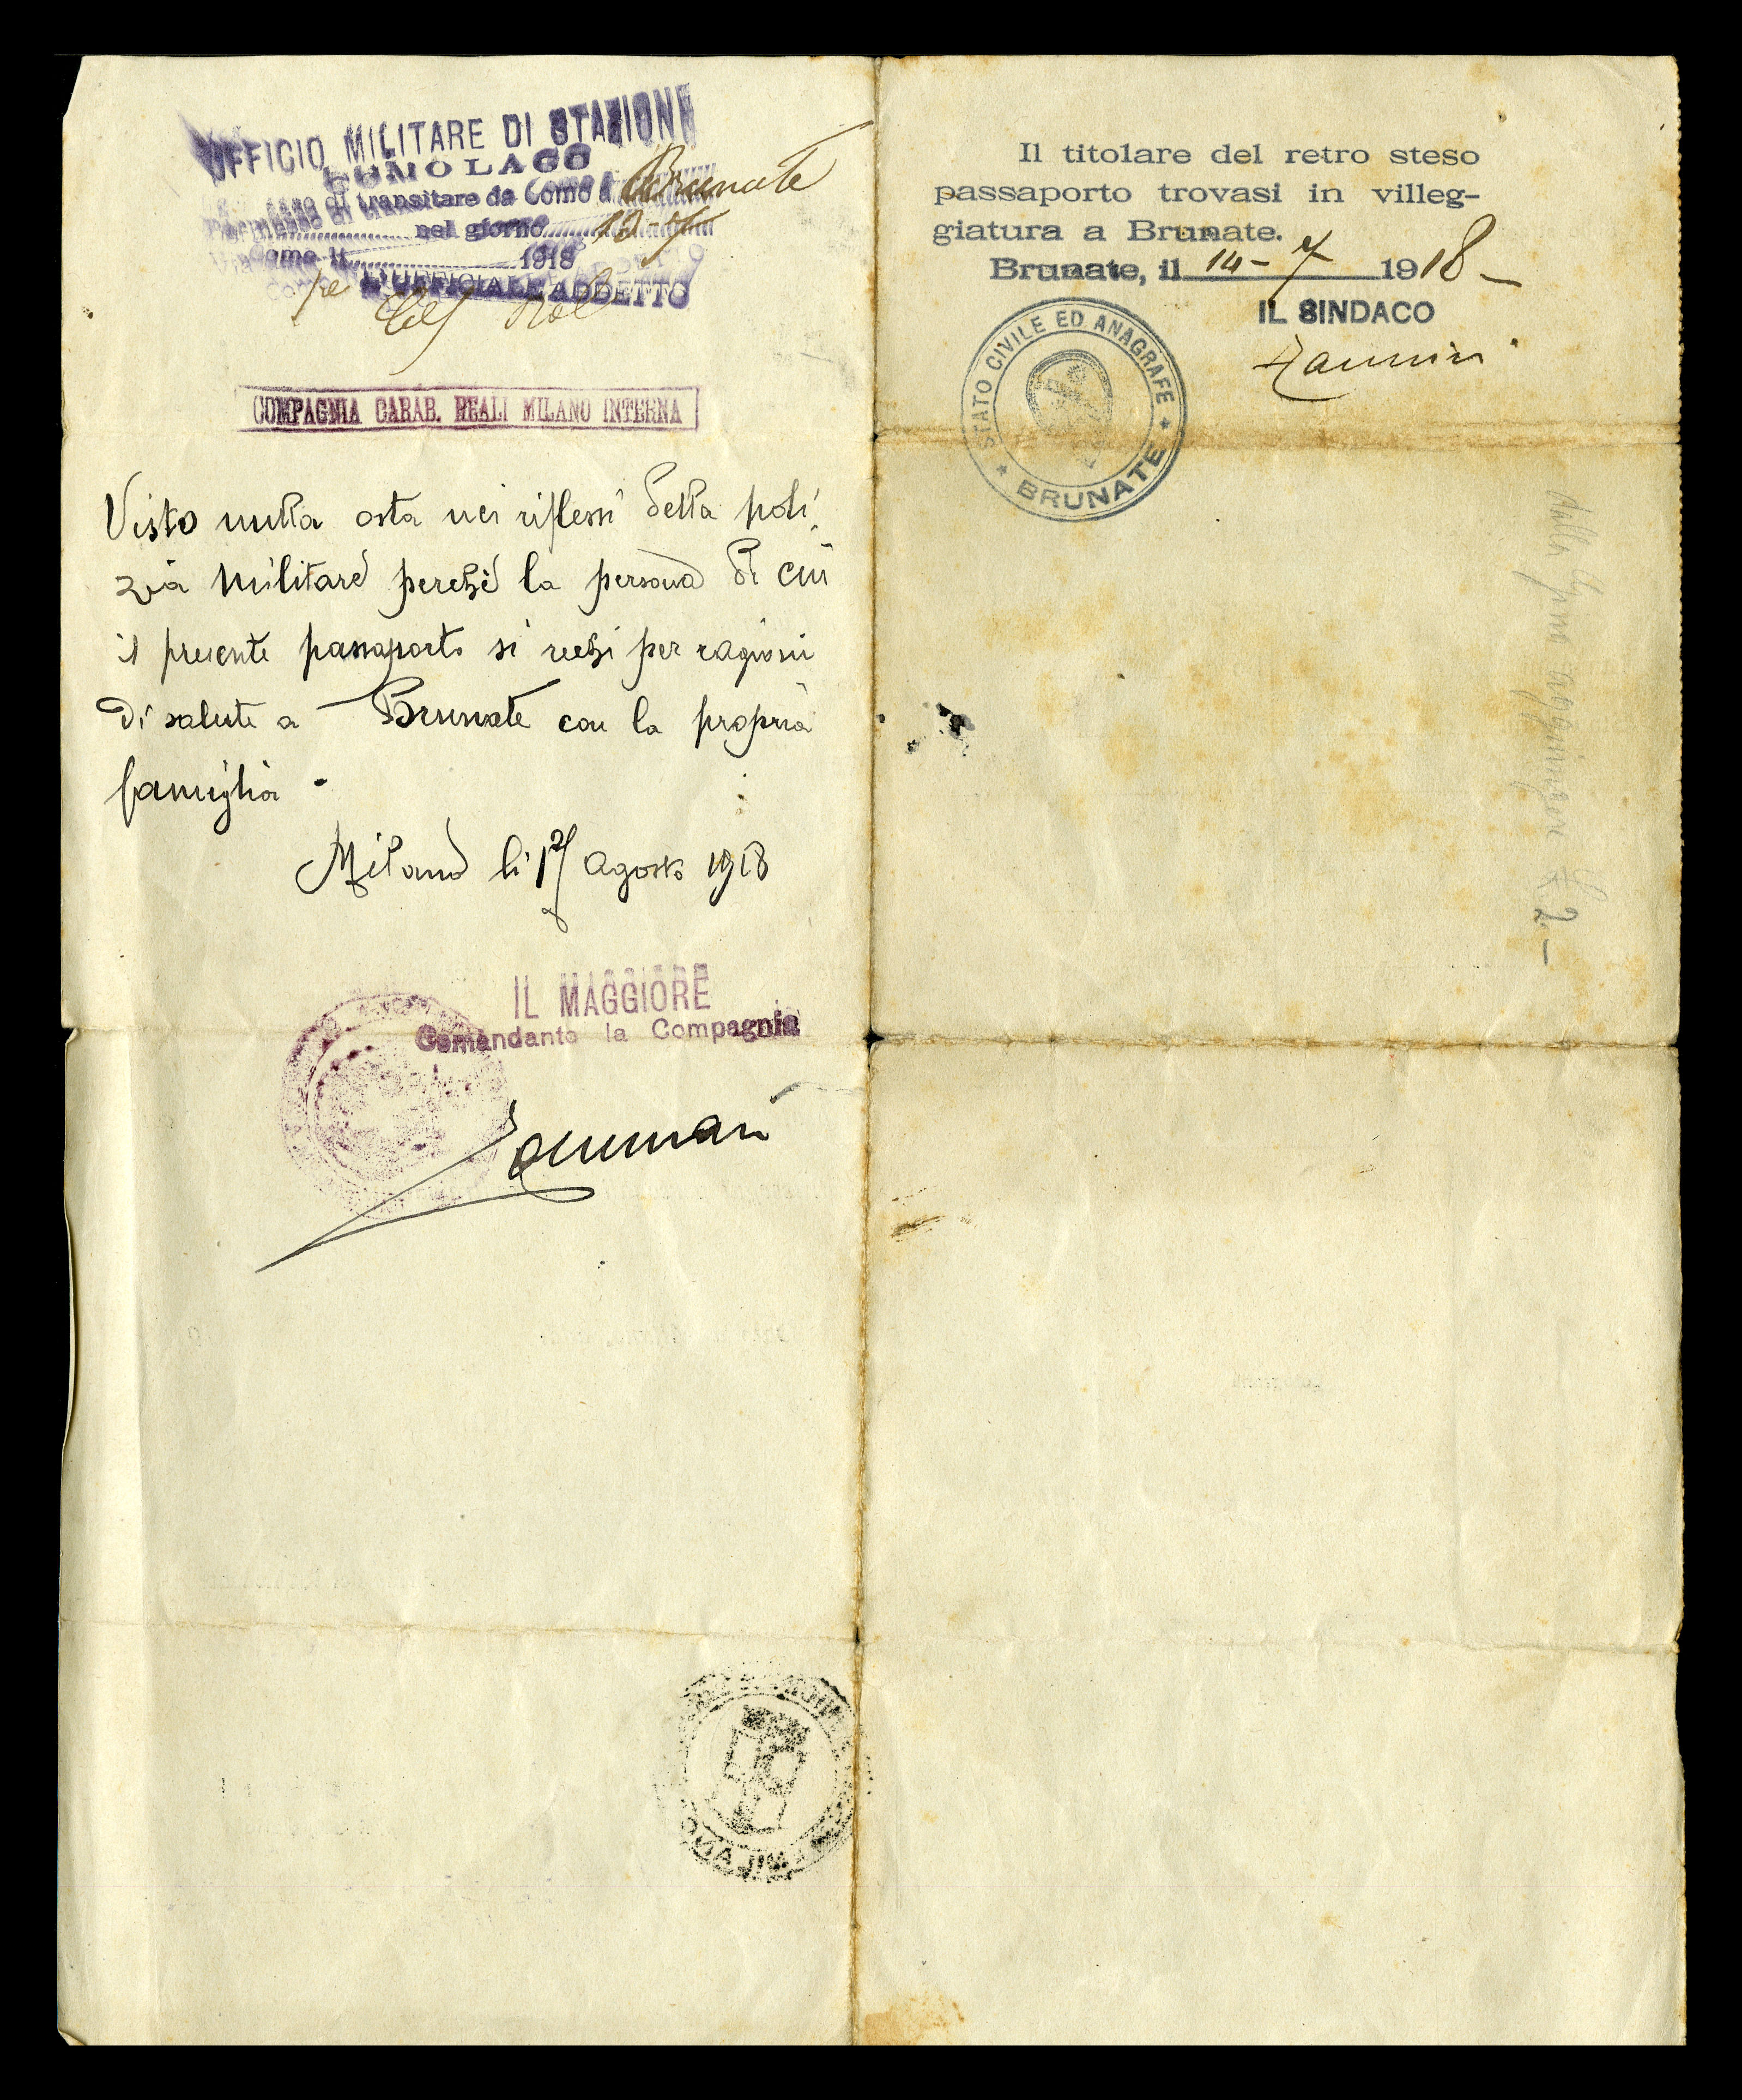 UFFICIO MILITARE DI STAZIONE
COMO LAGO
di transitare da Como a Brunate
nel giorno 12-7
Como li 1918
L'UFFICIALE ADDETTO
COMPAGNIA CARAB. REALI MILANO INTERNA
Visto nulla osta nei riflessi della poli
zia militare perchè la persona di cui
il presente passaporto si rechi per ragioni
di salute a Brunate con la propria
famiglia.
Milano li agosto 1918
IL MAGGIORE
Comandante la Compagnia
MILANO
Il titolare del retro steso
passaporto trovasi in villeg-
giatura a Brunate.
Brunate, il 14-7 1918
IL SINDACO
STATO CIVILE ED ANAGRAFE
BRUNATE